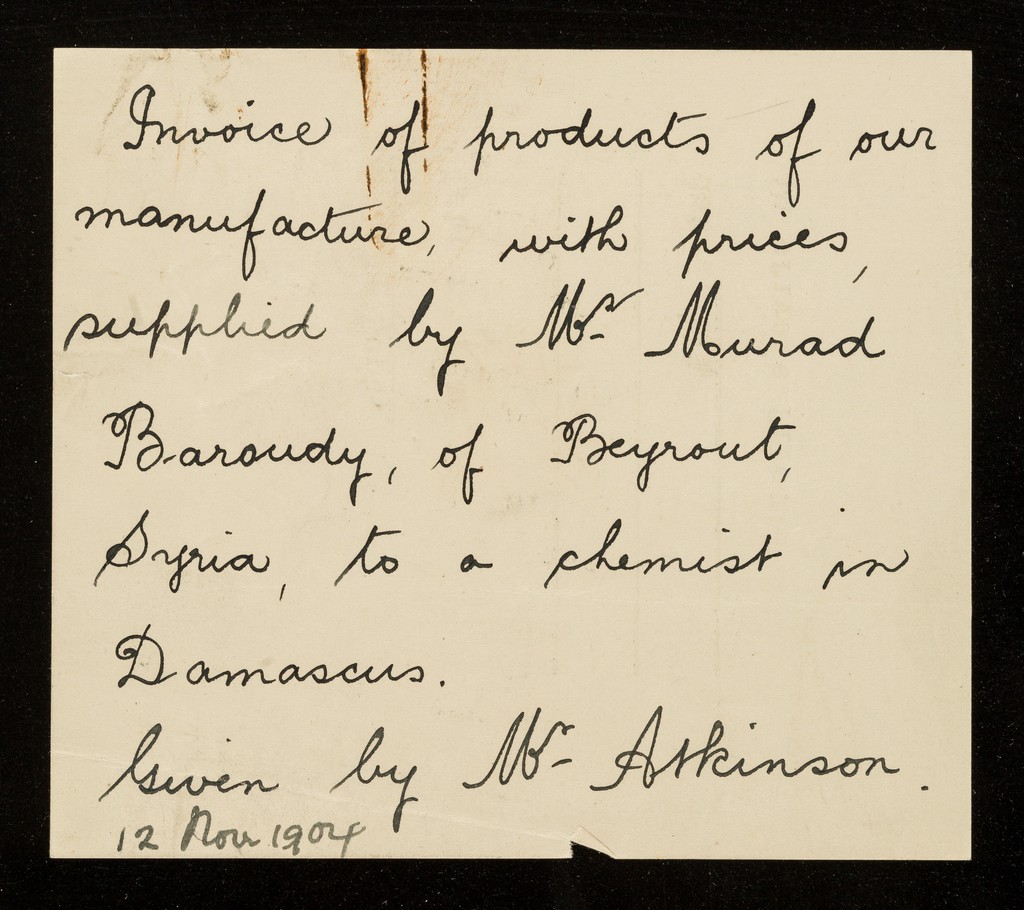 Invoice of products of our
manufacture, with prices,
supplied by Mr Murad
Baroudy, of Beyrout,
Syria, to a chemist in
Damascus.
Given by Mr Atkinson.
12 Nov 1904